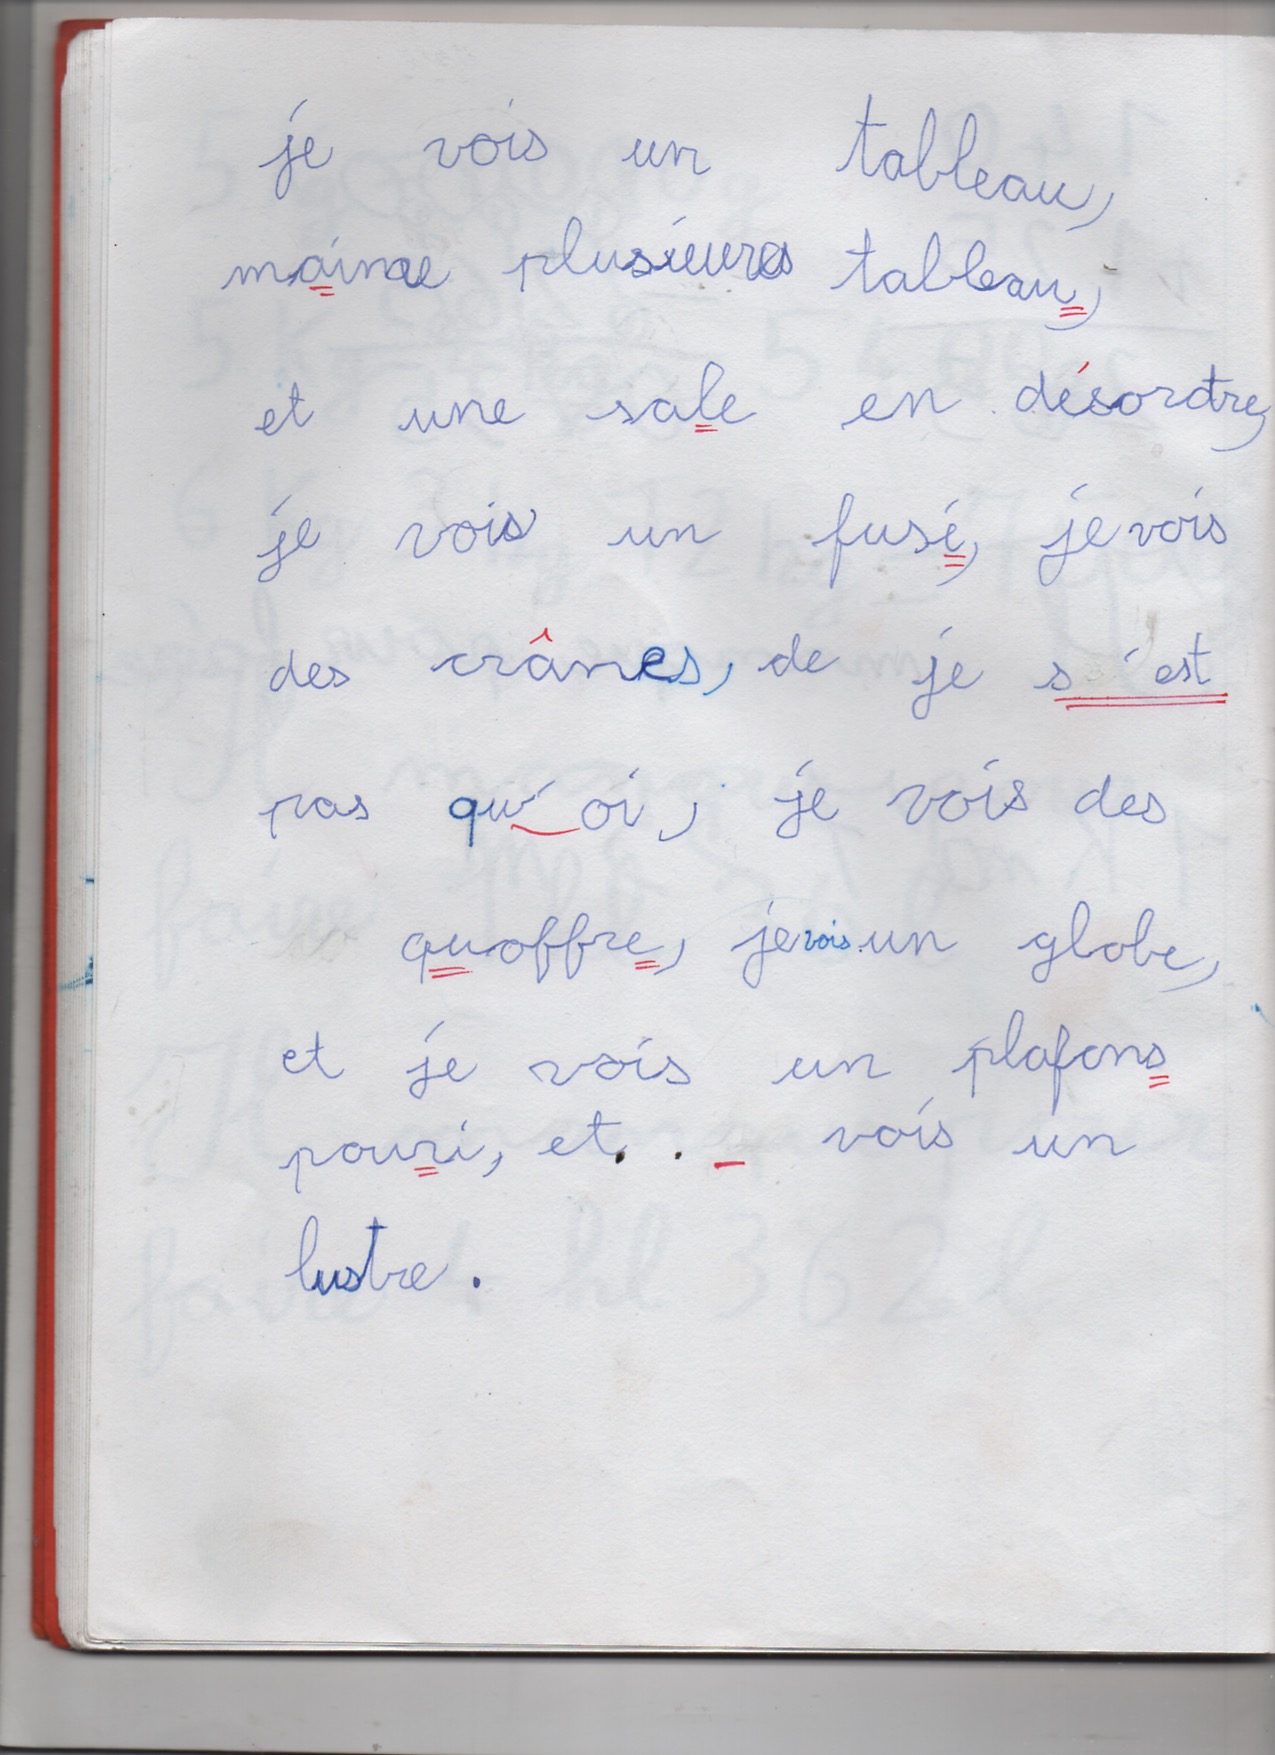 je vois un tableau,
mainae plusieures tableau,
et une sale en désordre,
je vois un fusi, je vois
des crânes, de je s'est
pas qu'oi, je vois des
quoffre, je vois un globe,
et je vois un plafons
pouri, et . . vois un
lustre.